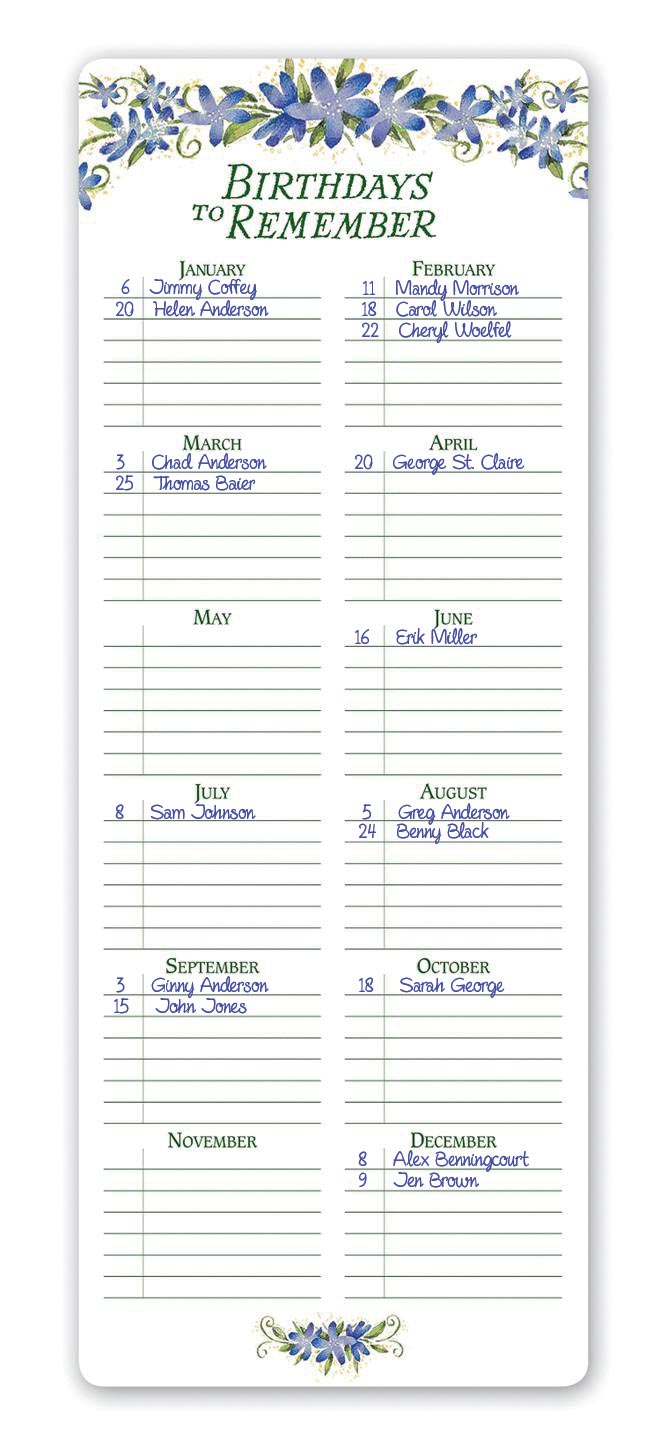 BIRTHDAYS
TO REMEMBER
JANUARY
6 Jimmy Coffey
20 Helen Anderson
FEBRUARY
11 Mandy Morrison
18 Carol Wilson
22 Cheryl Woelfel
MARCH
3 Chad Anderson
25 Thomas Baier
APRIL
20 George St. Claire
MAY
JUNE
16 Erik Miller
JULY
8 Sam Johnson
AUGUST
5 Greg Anderson
24 Benny Black
SEPTEMBER
3 Ginny Anderson
15 John Jones
OCTOBER
18 Sarah George
NOVEMBER
DECEMBER
8 Alex Benningcourt
9 Jen Brown